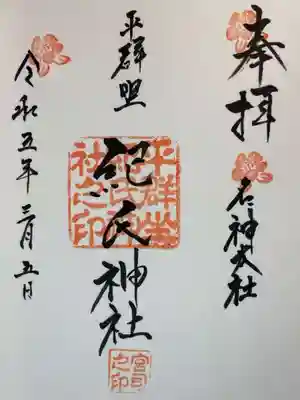 奉拝
名神大社
平群坐
紀氏神社
平群坐紀氏神社之印
宮司之印
令和五年三月五日